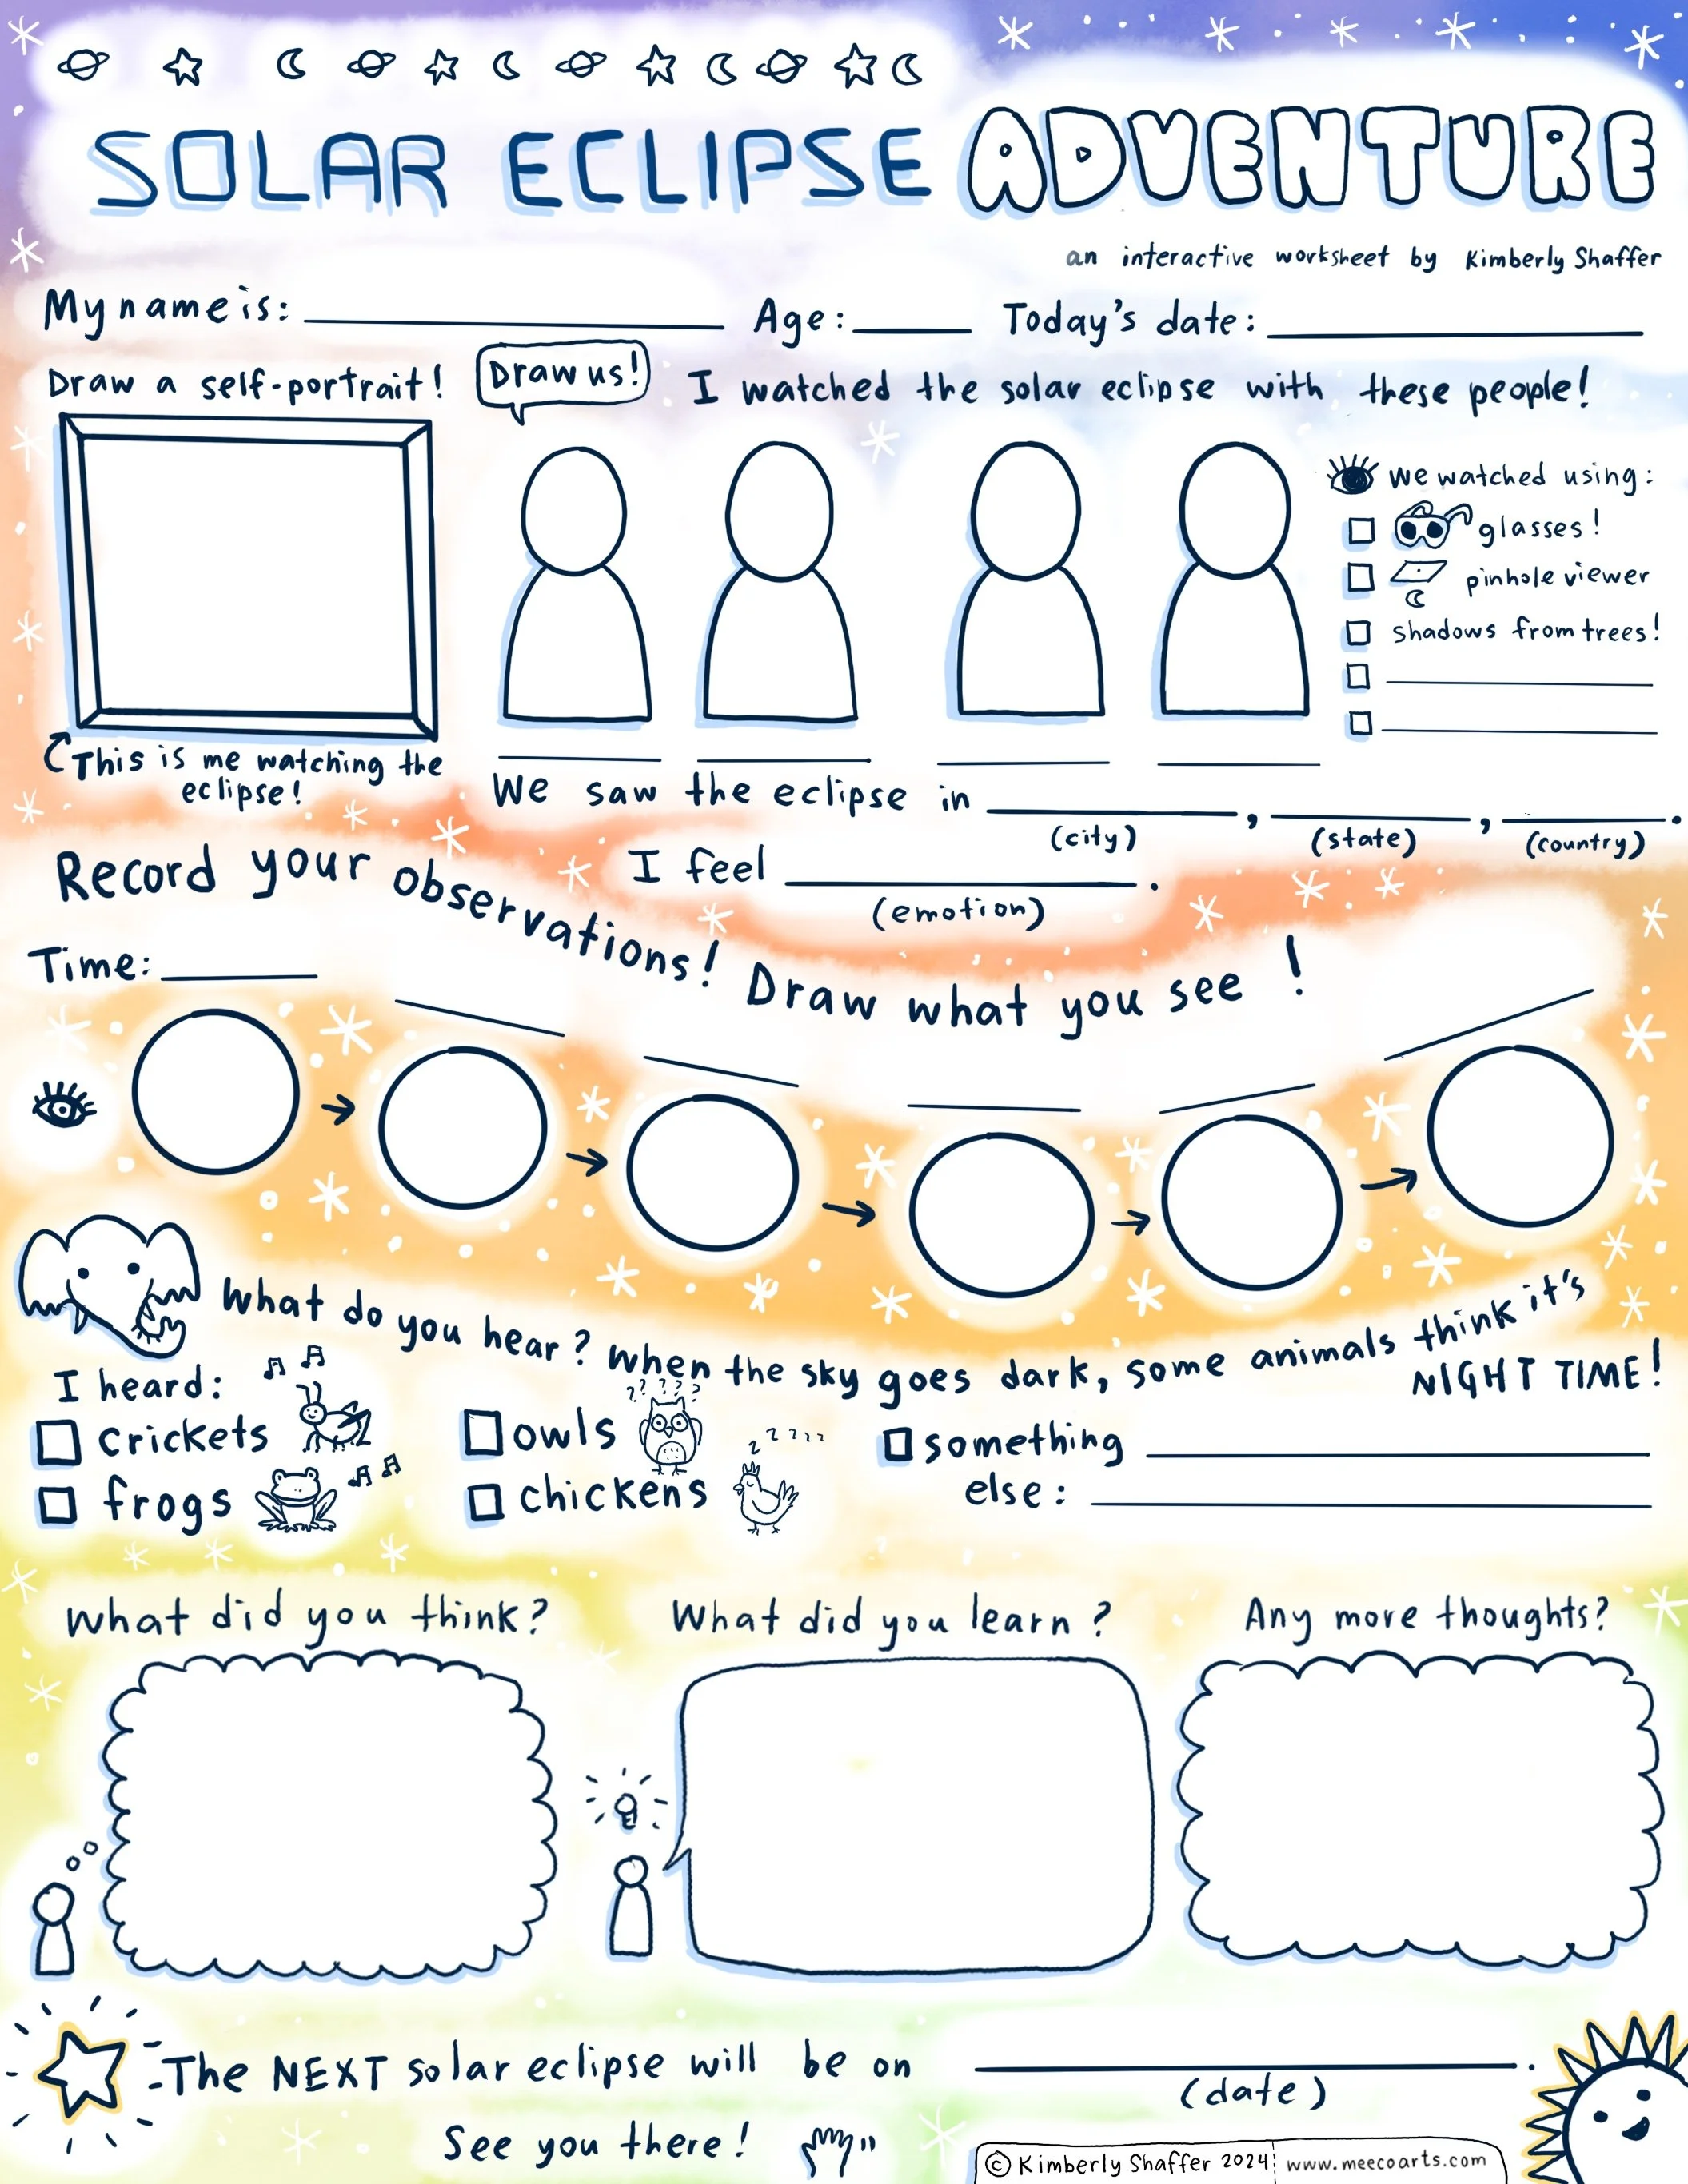 SOLAR ECLIPSE ADVENTURE
an interactive worksheet by Kimberly Shaffer
My name is: Age: Today's date:
Draw a self-portrait!
Draw us!
I watched the solar eclipse with these people!
we watched using:
glasses!
pinhole viewer
shadows from trees!
This is me watching the
eclipse!
We saw the eclipse in , , .
(city) (state) (country)
I feel .
(emotion)
Record your observations! Draw what you see!
Time:
What do you hear? When the sky goes dark, some animals think it's
NIGHT TIME!
I heard:
crickets
frogs
? ? ? ? ?
owls
z z z z z
chickens
something
else:
What did you think?
What did you learn?
Any more thoughts?
The NEXT solar eclipse will be on .
(date)
See you there!
© Kimberly Shaffer 2024 www.meecoarts.com